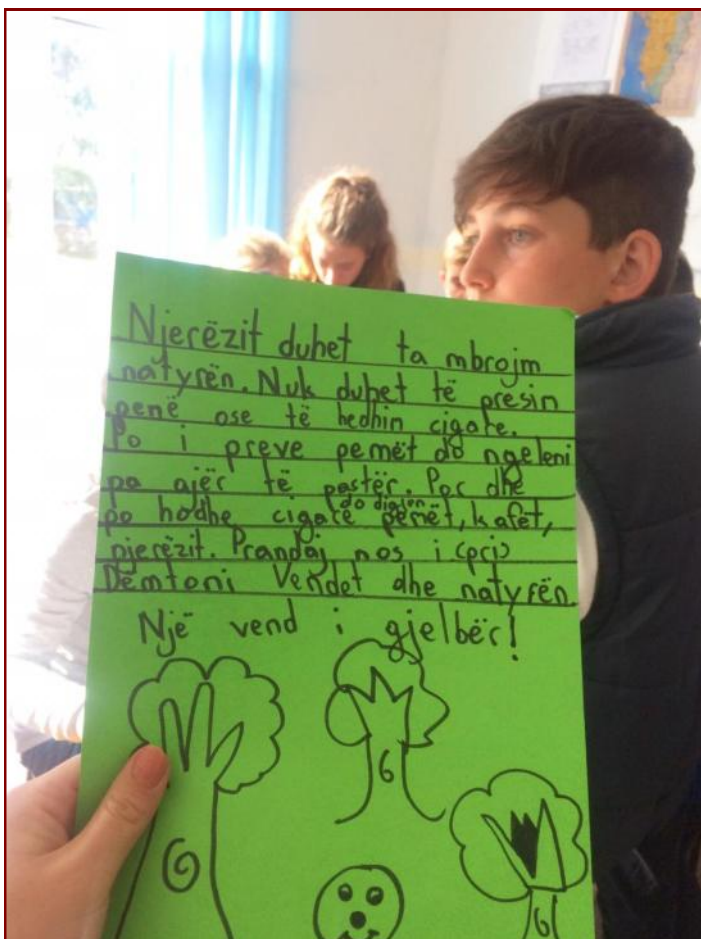 Njerëzit duhet ta mbrojm
natyrën. Nuk duhet të presin
pemë ose të hedhin cigare.
Po i preve pemët do ngeleni
pa ajër të pastër. Por dhe
do digjen
po hodhe cigare pemët, kafët,
njerëzit. Prandaj mos i (pris)
Dëmtoni Vendet dhe natyrën.
Një vend i gjelbër!